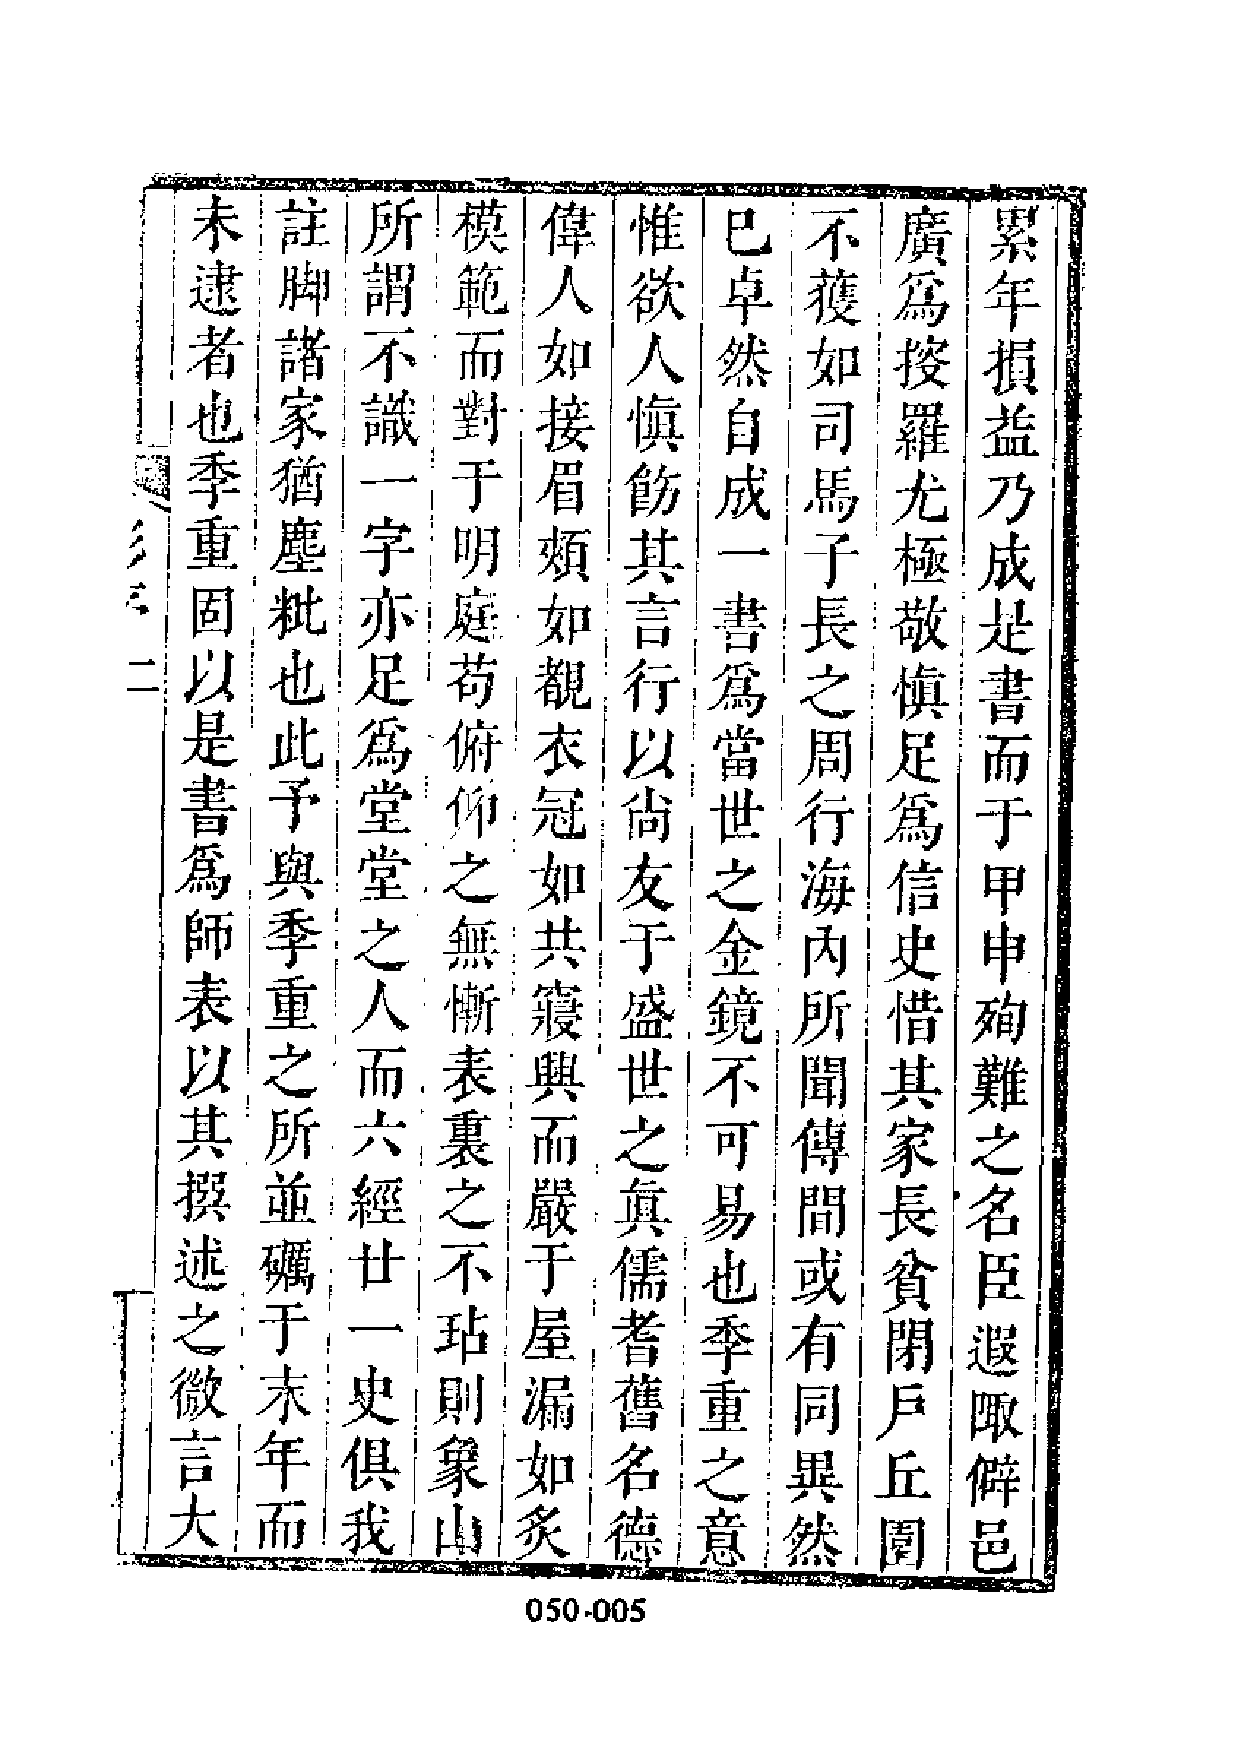 累年損益乃成是書而于甲申殉難之名臣遐陬僻邑
廣爲搜羅尤極敬慎足爲信史惜其家長貧閉戶丘園
不獲如司馬子長之周行海內所聞傳間或有同異然
已卓然自成一書爲當世之金鏡不可易也季重之意
惟欲人慎飭其言行以尙友于盛世之眞儒耆舊名德
偉人如接眉頰如覩衣冠如共寢興而嚴于屋漏如炙
模範而對于明庭苟俯仰之無慚表裏之不玷則象山
所謂不識一字亦足爲堂堂之人而六經廿一史俱我
註脚諸家猶塵粃也此予與季重之所並礪于末年而
未逮者也季重固以是書爲師表以其撰述之微言大
二
050-005